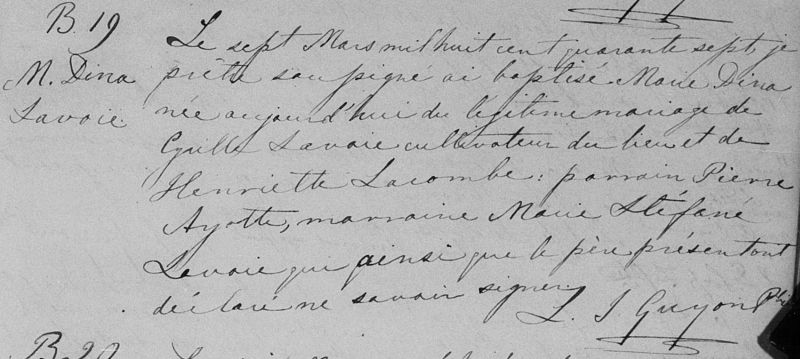 B. 19
M. Dina
Lavoie.
Le sept Mars mil huit cent quarante sept, je
prêtre soussigné ai baptisé Marie Dina
née aujourd'hui du légitime mariage de
Cyrille Lavoie cultivateur du lieu et de
Henriette Lacombe: parrain Pierre
Ayotte, marraine Marie Stéfané
Lavoie qui ainsi que le père présent ont
déclaré ne savoir signer.
L. J Guyon Ptre
B. 20